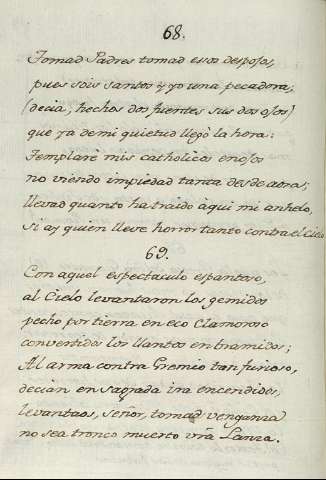 68.
Tomad Padres tomad esos despojos,
pues sois santos y yo una pecadora;
(decia, hechos dos fuentes sus dos ojos)
que ya de mi quietud llegò la hora:
Templare mis catholicos enojos
no viendo impiedad tanta desde aora;
llevad quanto ha traido àqui mi anhelo,
si ay quien lleve horror tanto contra el Cielo
69.
Con aquel espectaculo espantoso,
al Cielo levantaron los gemidos
pecho por tierra en eco Clamoroso
convertidos los llantos en bramidos;
Al arma contra Gremio tan furioso,
decian en sagrada ira encendidos,
levantaos, señor, tomad venganza
no sea tronco muerto vrã Lanza.